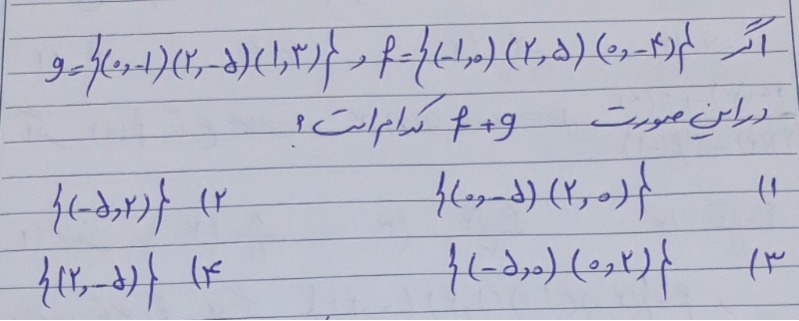 اگر f={(-۱,۰)(۲,۵)(۰,-۴)} , g={(۰,-۱)(۲,-۵)(۱,۳)}
در این صورت f+g کدام است؟
۱) {(۰,-۵)(۲,۰)} ۲) {(-۵,۲)}
۳) {(-۵,۰)(۰,۲)} ۴) {(۲,-۵)}